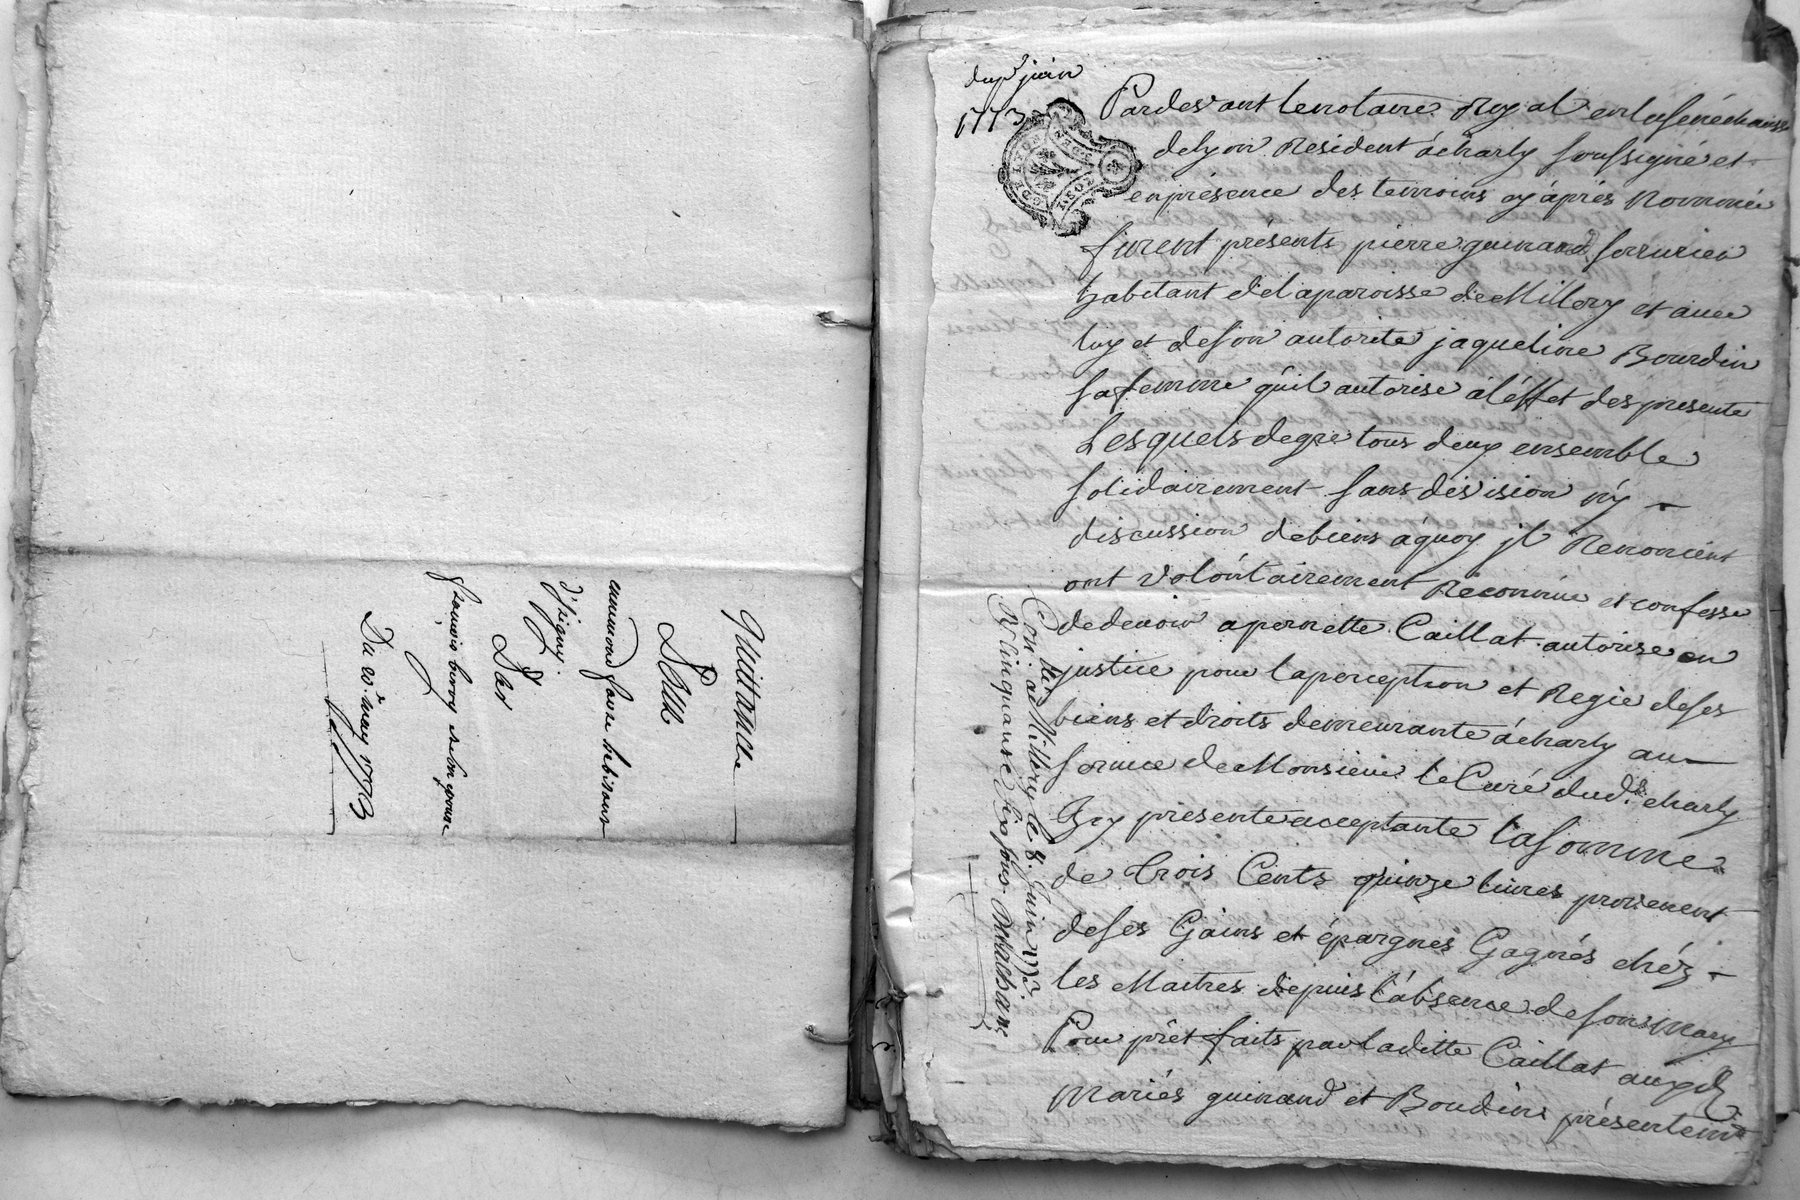 Quittance
Pour
emmond faure
d'jrigny
Par
francois
Du 20e may 1773
du per juin
1773
Pardevant le notaire Royal en la sénéchaussé
de lyon Resident à charly soussigné et
en présence des temoins cy après Nommés
furent présents pierre guinand serrurier
habitant de la paroisse de Millery et avec
luy et de son autorité jaqueline Bourdin
sa femme qu'il autorise à l'éffet des presente
Lesquels de gré tous deux ensemble
solidairement sans division ny
discussion de biens à quoy jls Renoncent
ont volontairement Reconnu et confessé
de devoir a pernette Caillat autorisé en
justice pour la perception et Regie de ses
biens et droits demeurante à charly au
service de Monsieur le Curé dud. charly
Jcy présente acceptante la somme
de trois Cents quinze livres provenent
de ses Gains et épargnes Gagnés chéz
les Maitres depuis l'absence de son mary
Pour prêt faits par laditte Caillat auxd.
mariés guinand et Bourdin présentemt
Con. à Millery le 8. Juin 1773.
R. cinquante six sous